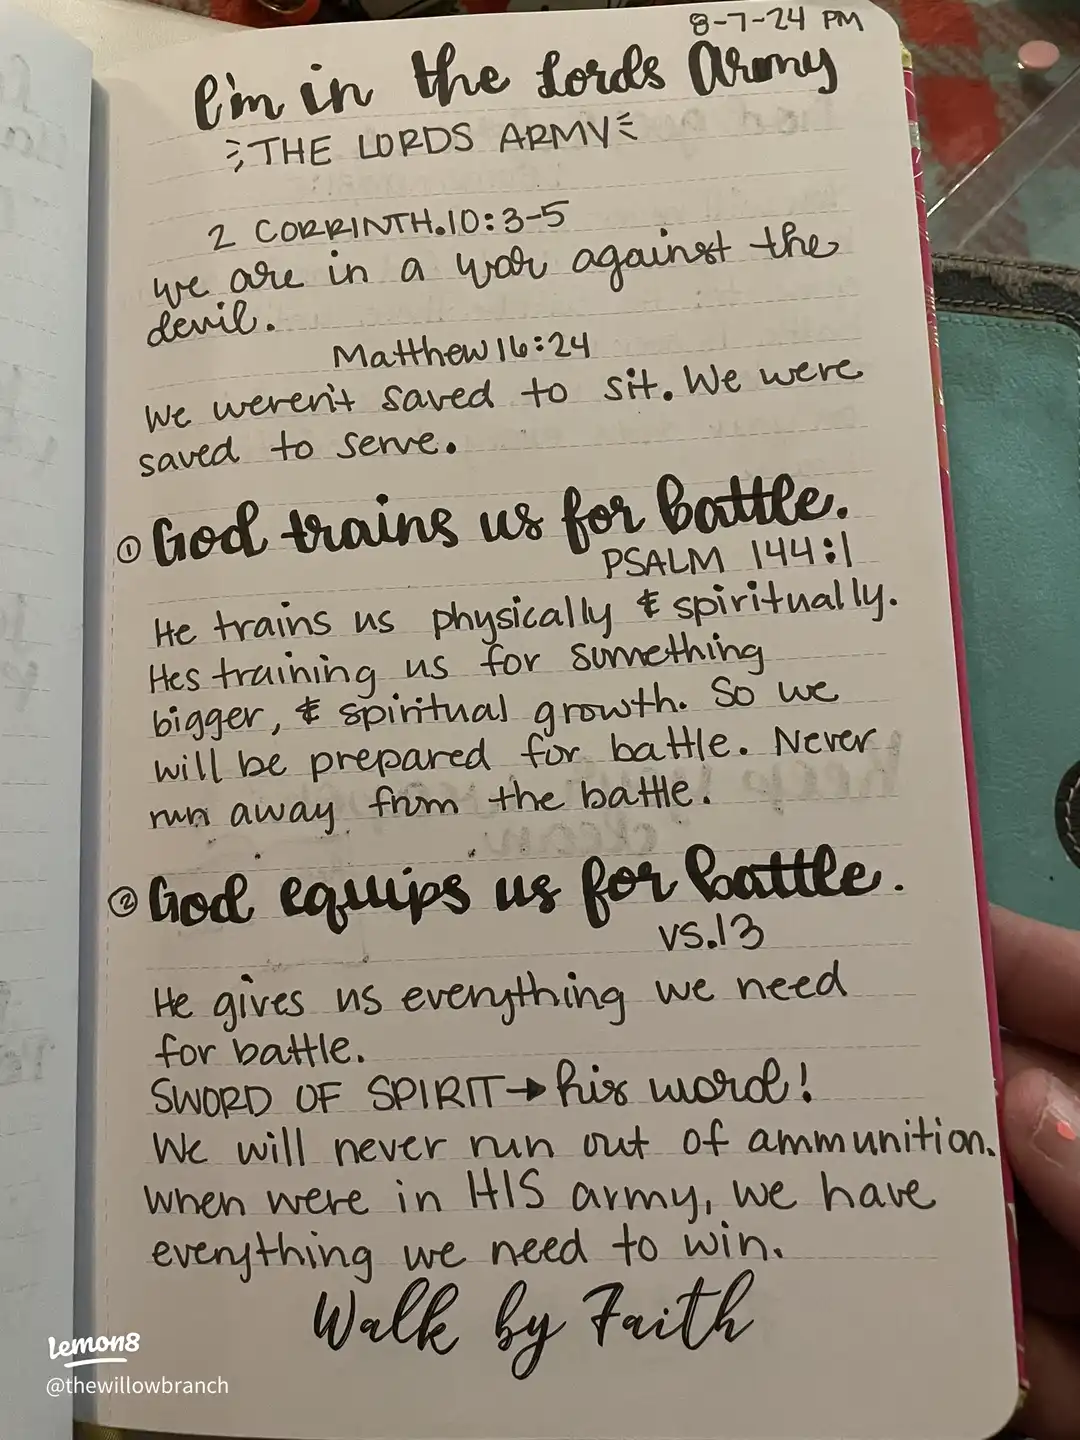 8-7-24 PM
I'm in the Lords Army
THE LORDS ARMY
2 CORRINTH.10:3-5
we are in a war against the
devil.
Matthew 16:24
We weren't saved to sit. We were
saved to serve.
① God trains us for battle.
PSALM 144:1
He trains us physically & spiritually.
Hes training us for something
bigger, & spiritual growth. So we
will be prepared for battle. Never
run away from the battle.
② God equips us for battle.
VS.13
He gives us everything we need
for battle.
SWORD OF SPIRIT → his word!
We will never run out of ammunition.
When were in HIS army, we have
everything we need to win.
Walk by Faith
Lemon8
@thewillowbranch